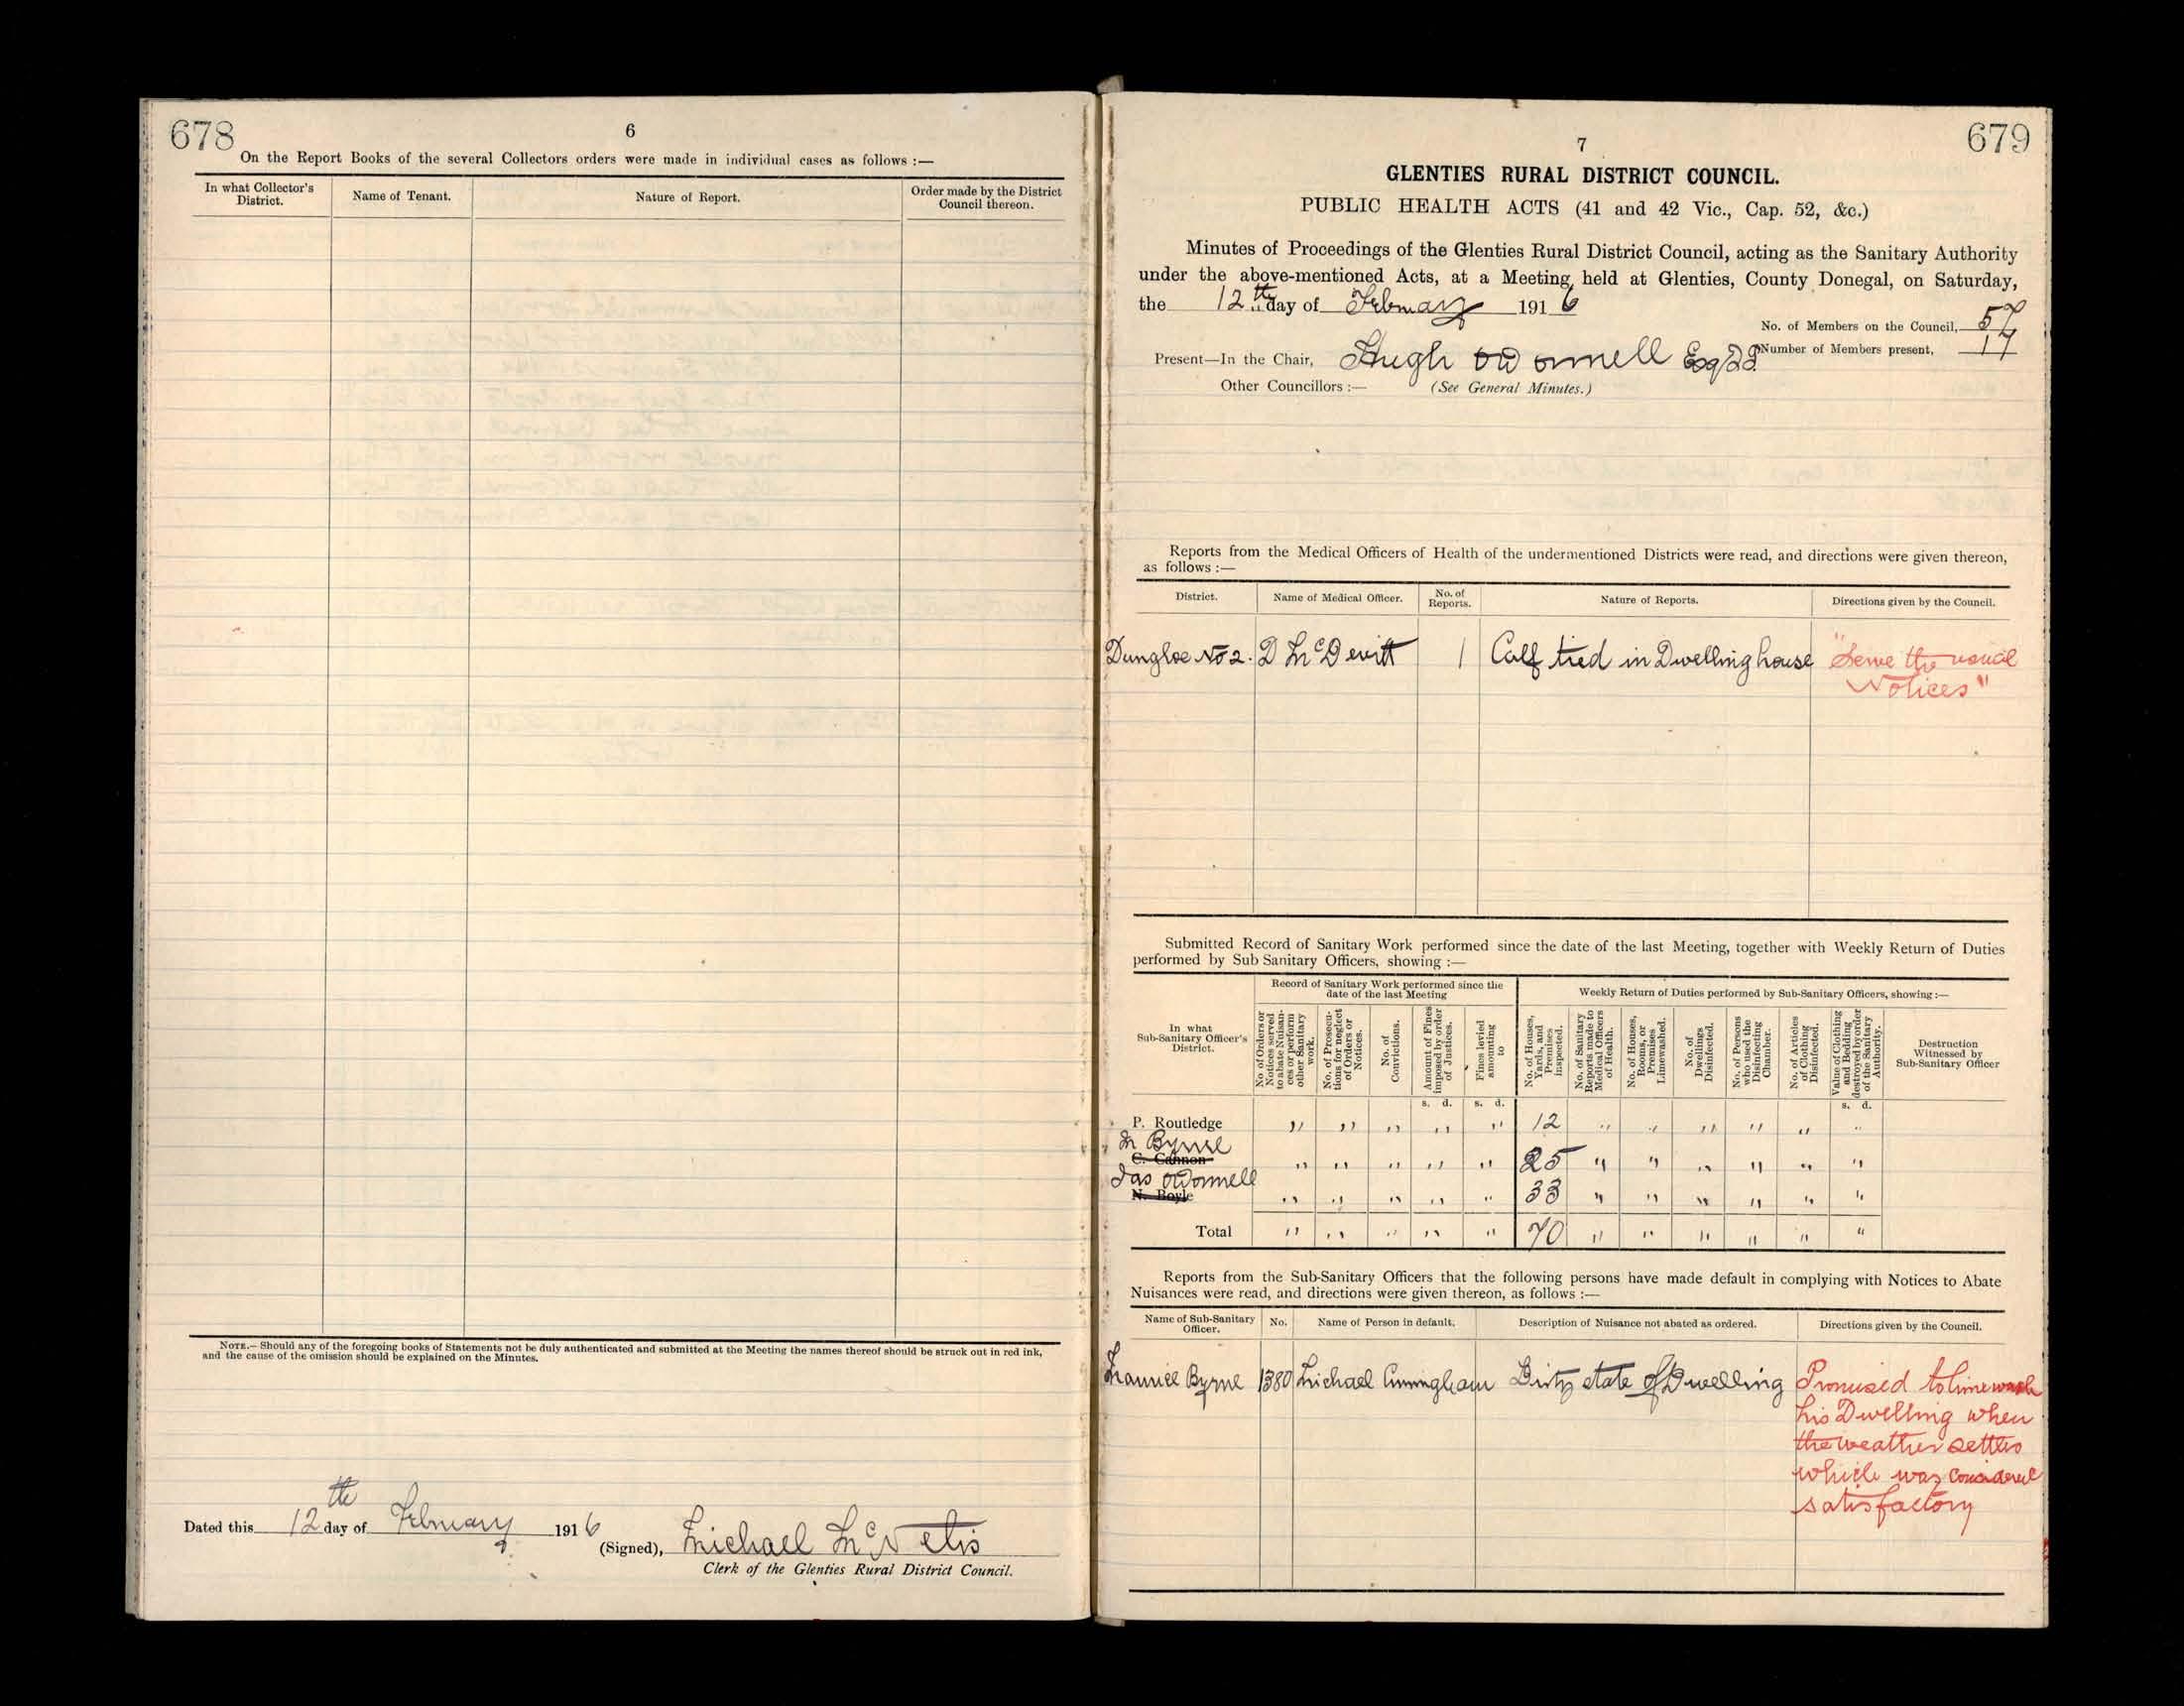 678
6
On the Report Books of the several Collectors orders were made in individual cases as follows :—
In what Collector's District.
Name of Tenant.
Nature of Report.
Order made by the District Council thereon.
NOTE.— Should any of the foregoing books of Statements not be duly authenticated and submitted at the Meeting the names thereof should be struck out in red ink,
and the cause of the omission should be explained on the Minutes.
Dated this 12th day of February 1916
(Signed), Michael McNelis
Clerk of the Glenties Rural District Council.
679
7
GLENTIES RURAL DISTRICT COUNCIL.
PUBLIC HEALTH ACTS (41 and 42 Vic., Cap. 52, &c.)
Minutes of Proceedings of the Glenties Rural District Council, acting as the Sanitary Authority
under the above-mentioned Acts, at a Meeting held at Glenties, County Donegal, on Saturday,
the 12th day of February 1916
No. of Members on the Council, 57
Present—In the Chair, Hugh O'Donnell Esq
Number of Members present, 17
Other Councillors :— (See General Minutes.)
Reports from the Medical Officers of Health of the undermentioned Districts were read, and directions were given thereon,
as follows :—
District.
Name of Medical Officer.
No. of Reports.
Nature of Reports.
Directions given by the Council.
Dungloe No 2. D McDevitt 1 Calf tied in Dwelling house "Serve the usual
Notices"
Submitted Record of Sanitary Work performed since the date of the last Meeting, together with Weekly Return of Duties
performed by Sub Sanitary Officers, showing :—
In what Sub-Sanitary Officer's District.
Record of Sanitary Work performed since the date of the last Meeting
Weekly Return of Duties performed by Sub-Sanitary Officers, showing :—
No of Orders or Notices served to abate Nuisances or perform other Sanitary work.
No. of Prosecutions for neglect of Orders or Notices.
No. of Convictions.
Amount of Fines imposed by order of Justices.
Fines levied amounting to
No. of Houses, Yards, and Premises inspected.
No. of Sanitary Reports made to Medical Officers of Health.
No. of Houses, Rooms, or Premises Limewashed.
No. of Dwellings Disinfected.
No. of Persons who used the Disinfecting Chamber.
No. of Articles of Clothing Disinfected.
Value of Clothing and Bedding destroyed by order of the Sanitary Authority.
Destruction Witnessed by Sub-Sanitary Officer
s. d. s. d. s. d.
P. Routledge " " " " " 12 " " " " " "
M Byrne
C. Cannon " " " " " 25 " " " " " "
Jas O'Donnell
N. Boyle " " " " " 33 " " " " " "
Total " " " " " 70 " " " " " "
Reports from the Sub-Sanitary Officers that the following persons have made default in complying with Notices to Abate
Nuisances were read, and directions were given thereon, as follows :—
Name of Sub-Sanitary Officer.
No.
Name of Person in default.
Description of Nuisance not abated as ordered.
Directions given by the Council.
Maurice Byrne 1380 Michael Cunningham Dirty state of Dwelling Promised to limewash
his Dwelling when
the weather settles
which was considered
satisfactory